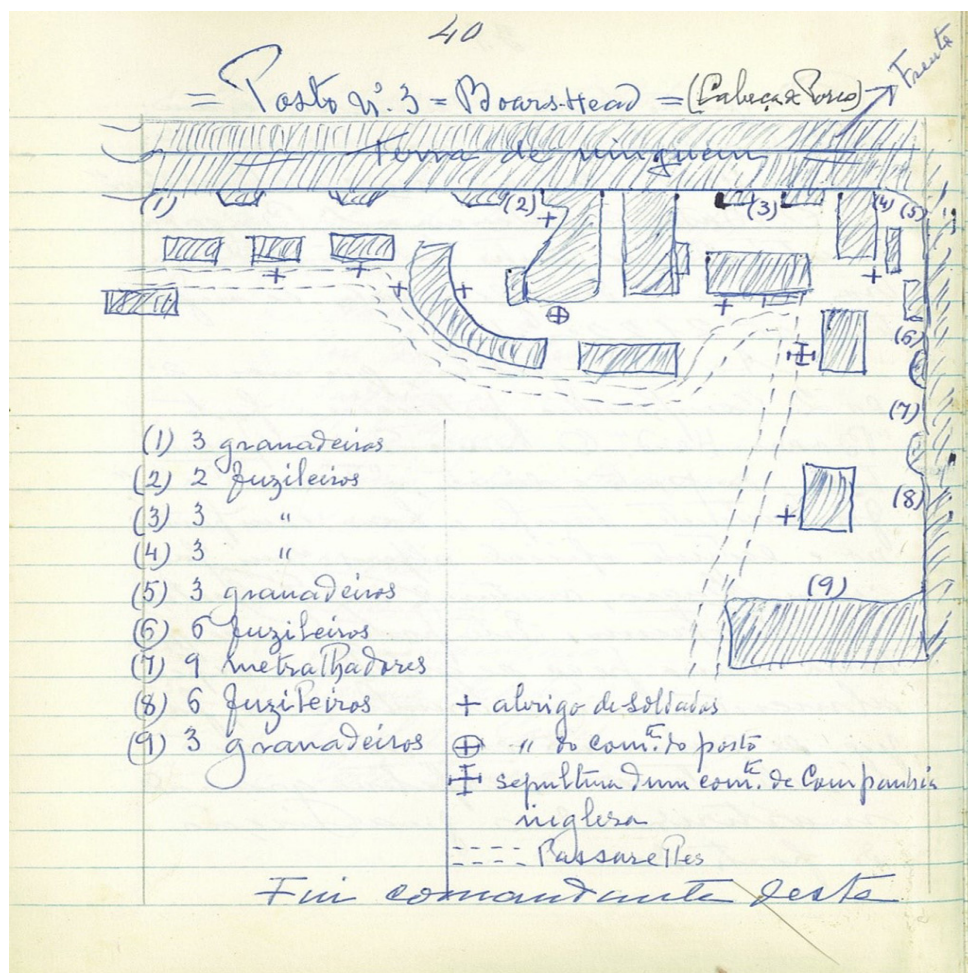 40
= Posto nº. 3 = Boars-Head = (Cabeça de Porco)
Frente
Terra de ninguem
(1)
(2)
(3)
(4)
(5)
(6)
(7)
(8)
(9)
(1) 3 granadeiros
(2) 2 fuzileiros
(3) 3 "
(4) 3 "
(5) 3 granadeiros
(6) 6 fuzileiros
(7) 9 metralhadores
(8) 6 fuzileiros
(9) 3 granadeiros
+ abrigo de soldados
⊕ " do com.te do posto
sepultura dum com.te de Companhia
inglesa
---- Passarelles
Fui comandante deste